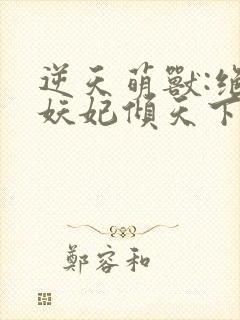 逆天萌獸:絕
妖妃傾天下
鄭容和